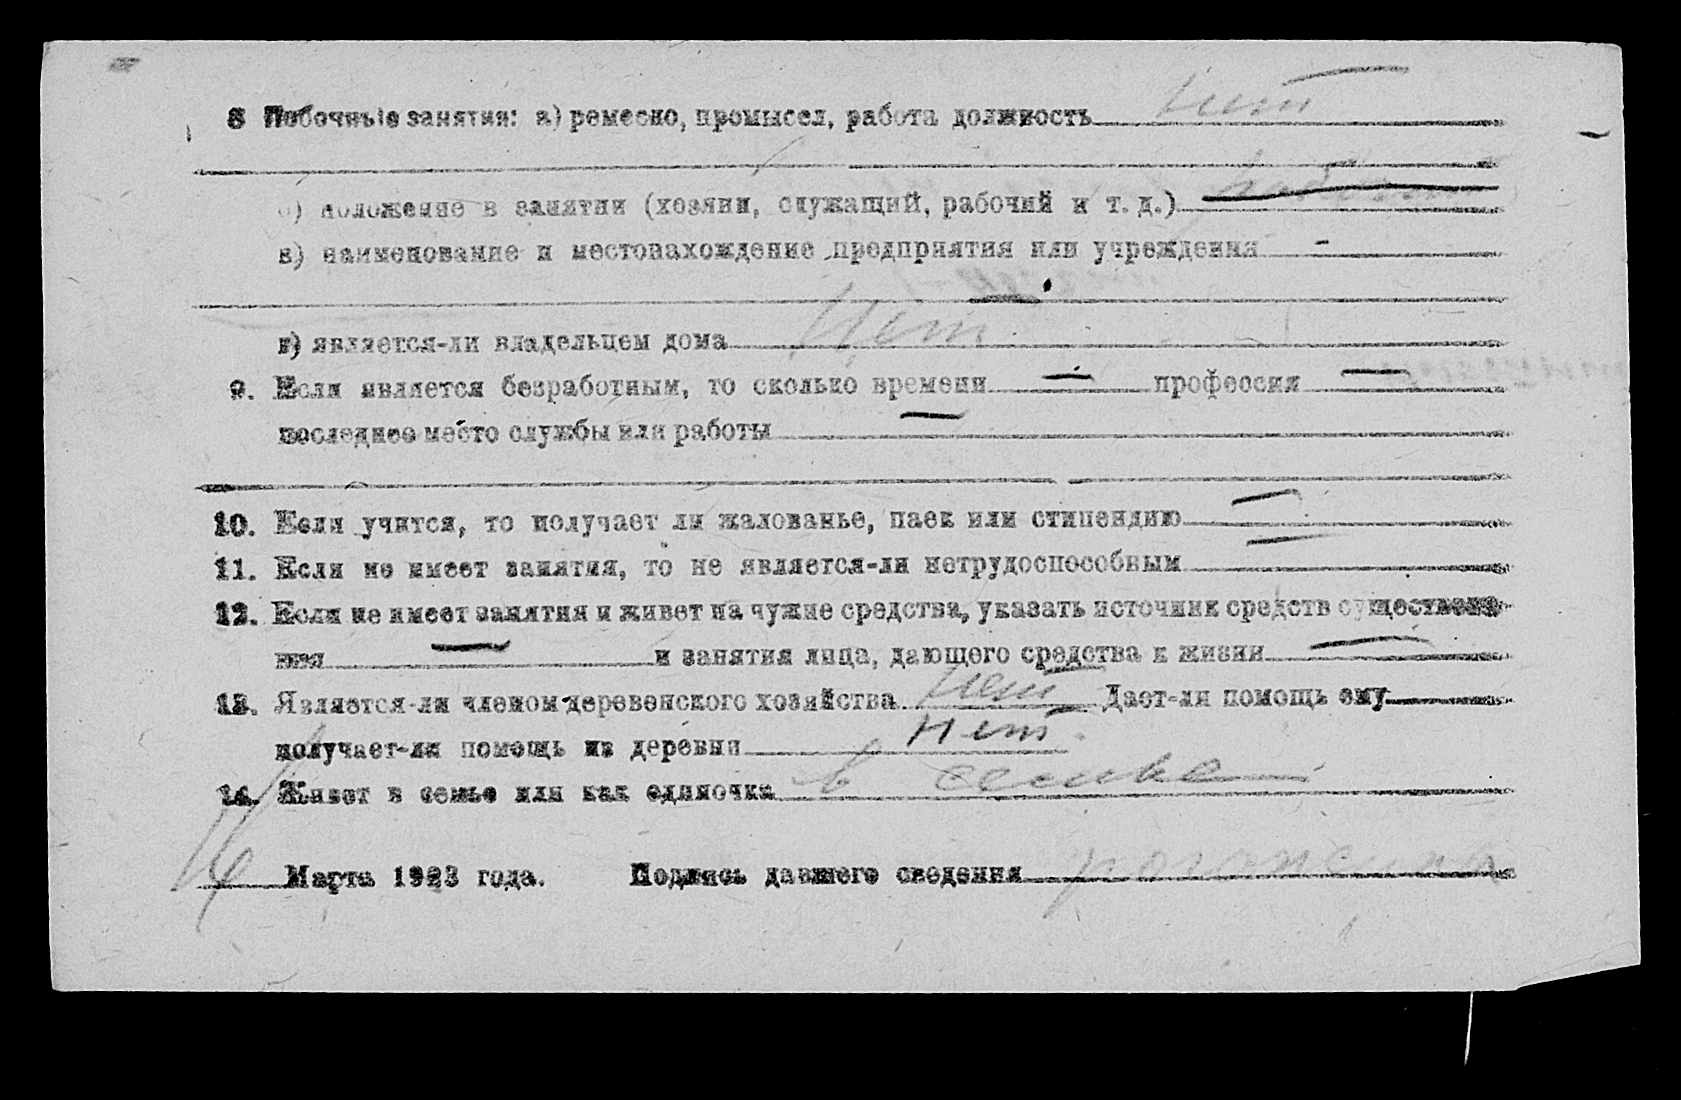 8 Побочные занятия: а) ремесло, промысел, работа должность нет
б) положение в занятии (хозяин, служащий, рабочий и т. д.)
в) наименование и местонахождение предприятия или учреждения -
г) является-ли владельцем дома Нет
9. Если является безработным, то сколько времени — профессия —
последнее место службы или работы —
10. Если учится, то получает ли жалованье, паек или стипендию —
11. Если не имеет занятия, то не является-ли нетрудоспособным —
12. Если не имеет занятия и живет на чужие средства, указать источник средств существова-
ния — и занятия лица, дающего средства к жизни —
13. Является-ли членом деревенского хозяйства нет Дает-ли помощь ему
получает-ли помощь из деревни нет
14. Живет в семье или как одиночка в семье
Марта 1923 года. Подпись давшего сведения